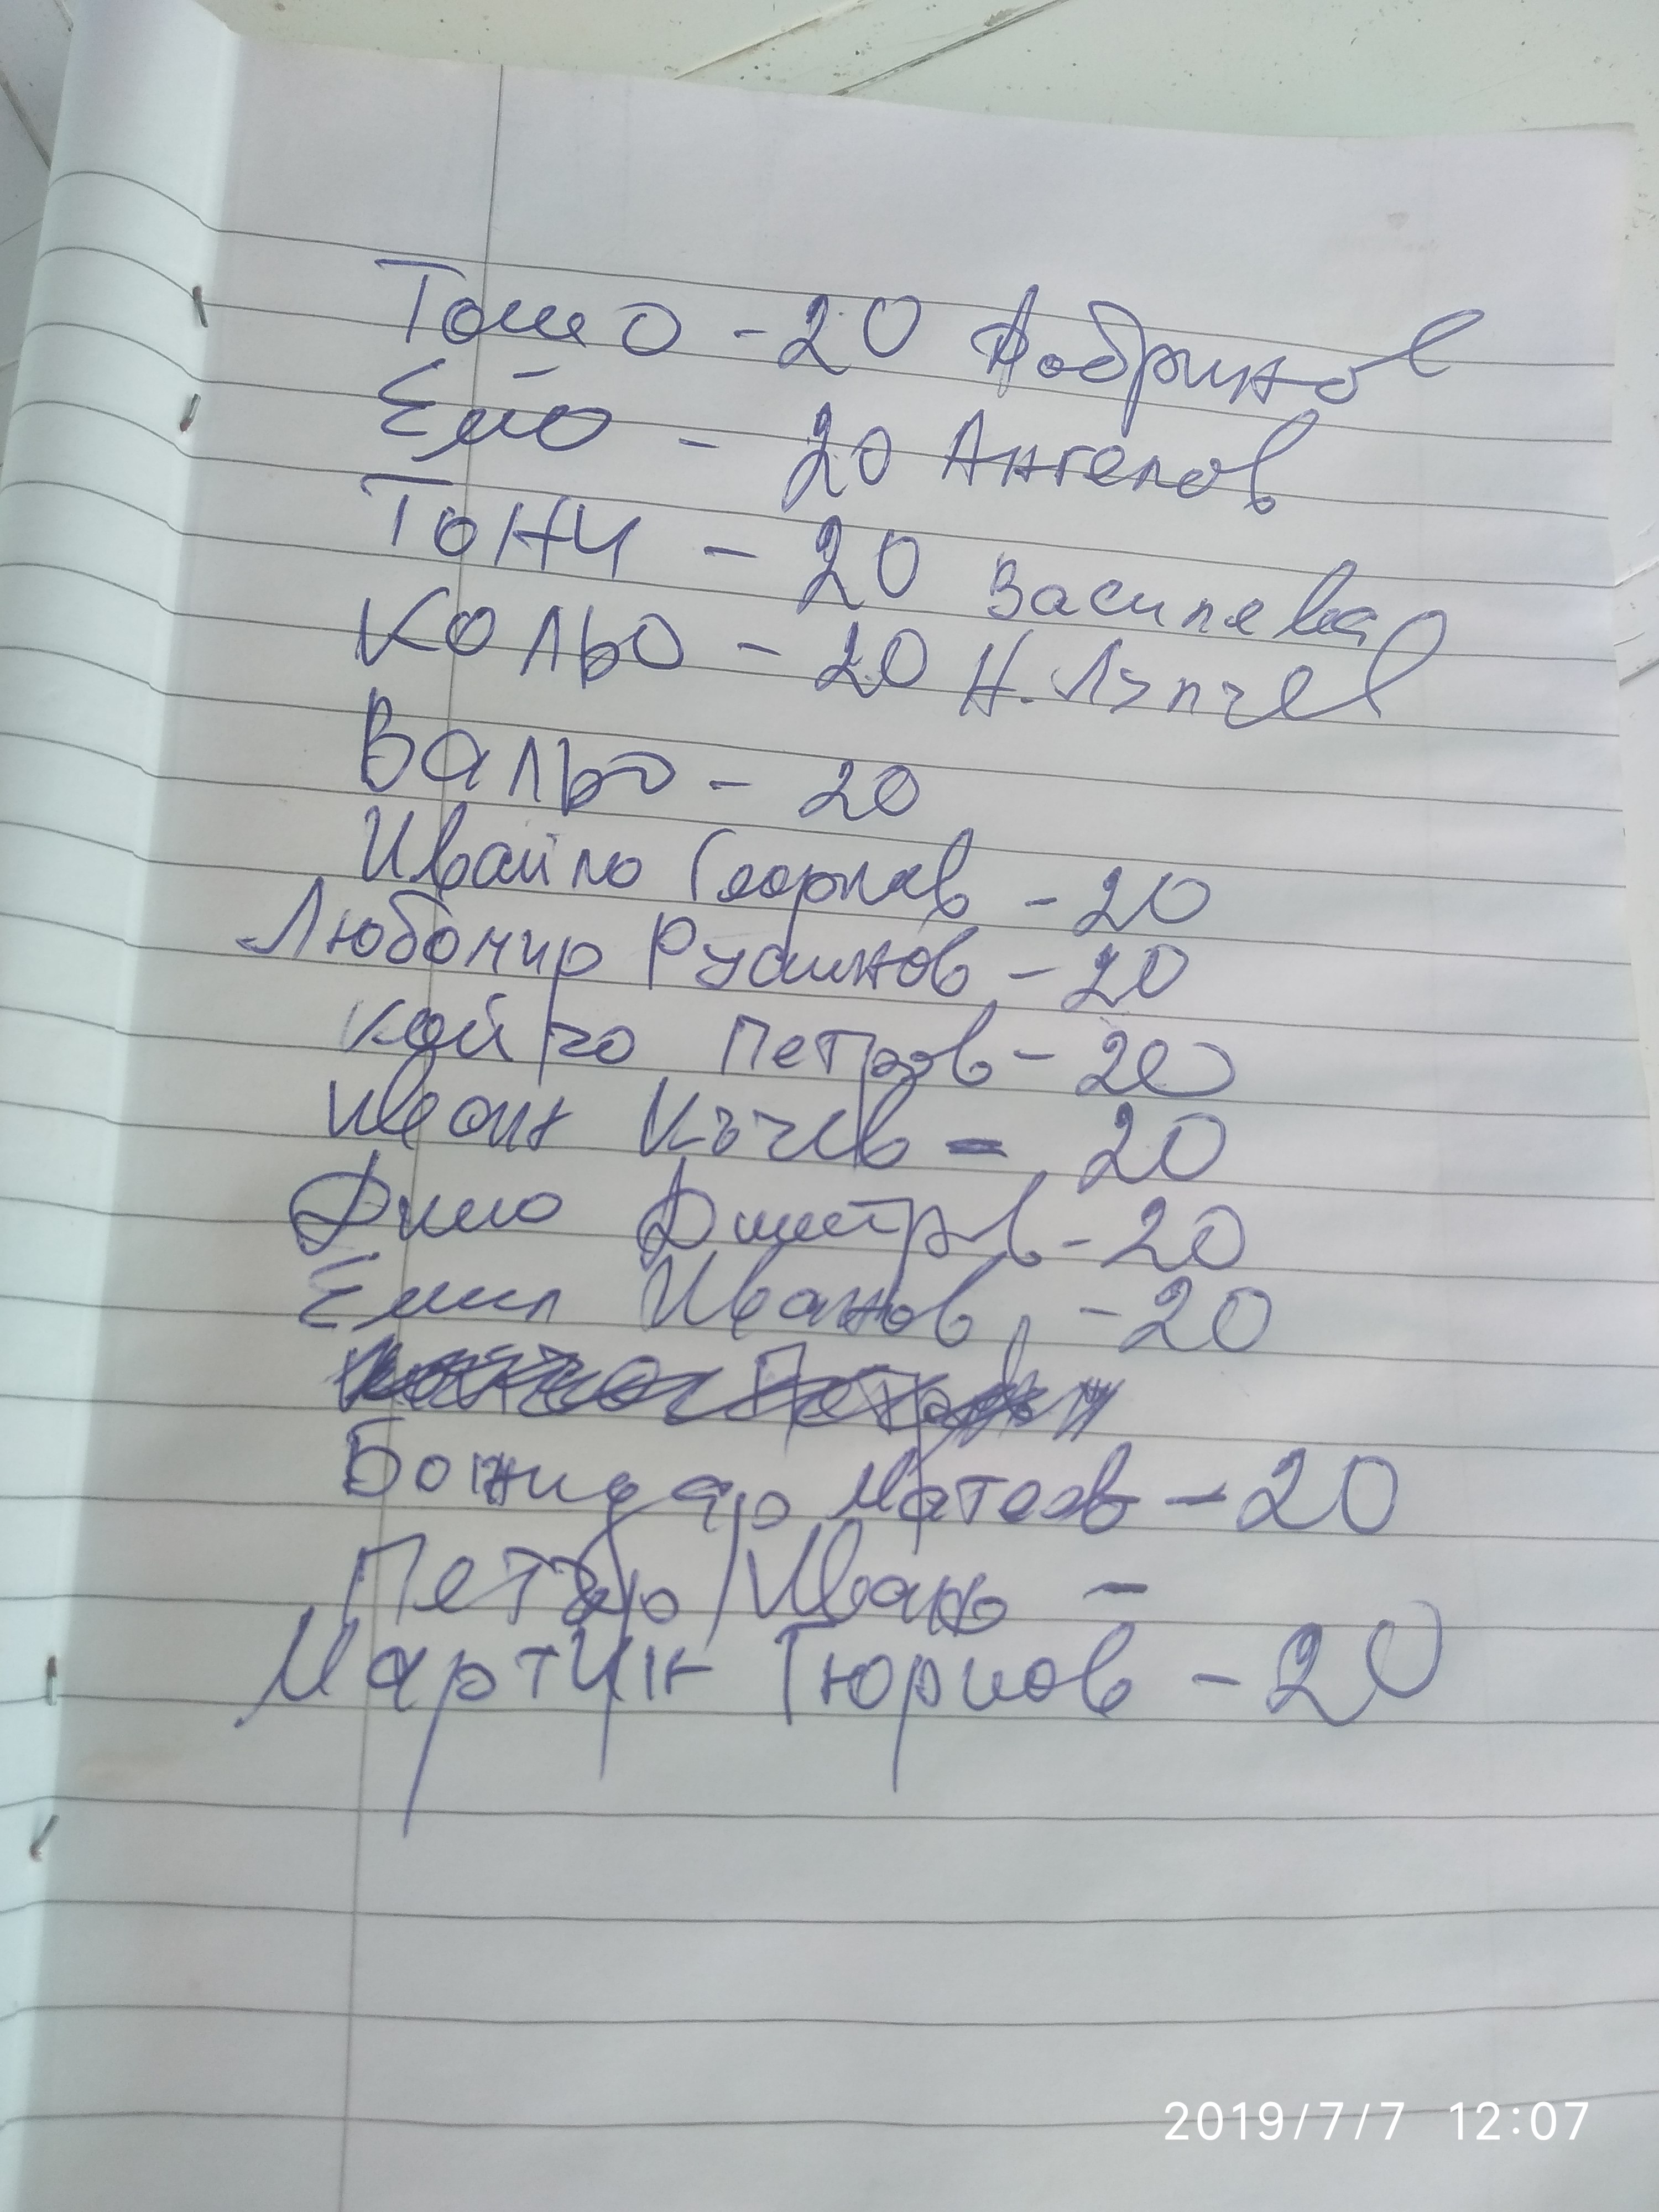 Тошо - 20 Добринов
Емо - 20 Ангелов
Тони - 20 Василева
Кольо - 20 Н. Лъпчев
Вальо - 20
Ивайло Георгиев - 20
Любомир Русинов - 20
Койчо Петров - 20
Иван Къчев - 20
Димо Димитров - 20
Емил Иванов - 20
Божидар Матеев - 20
Петър Иванов -
Мартин Гюрков - 20
2019/7/7 12:07